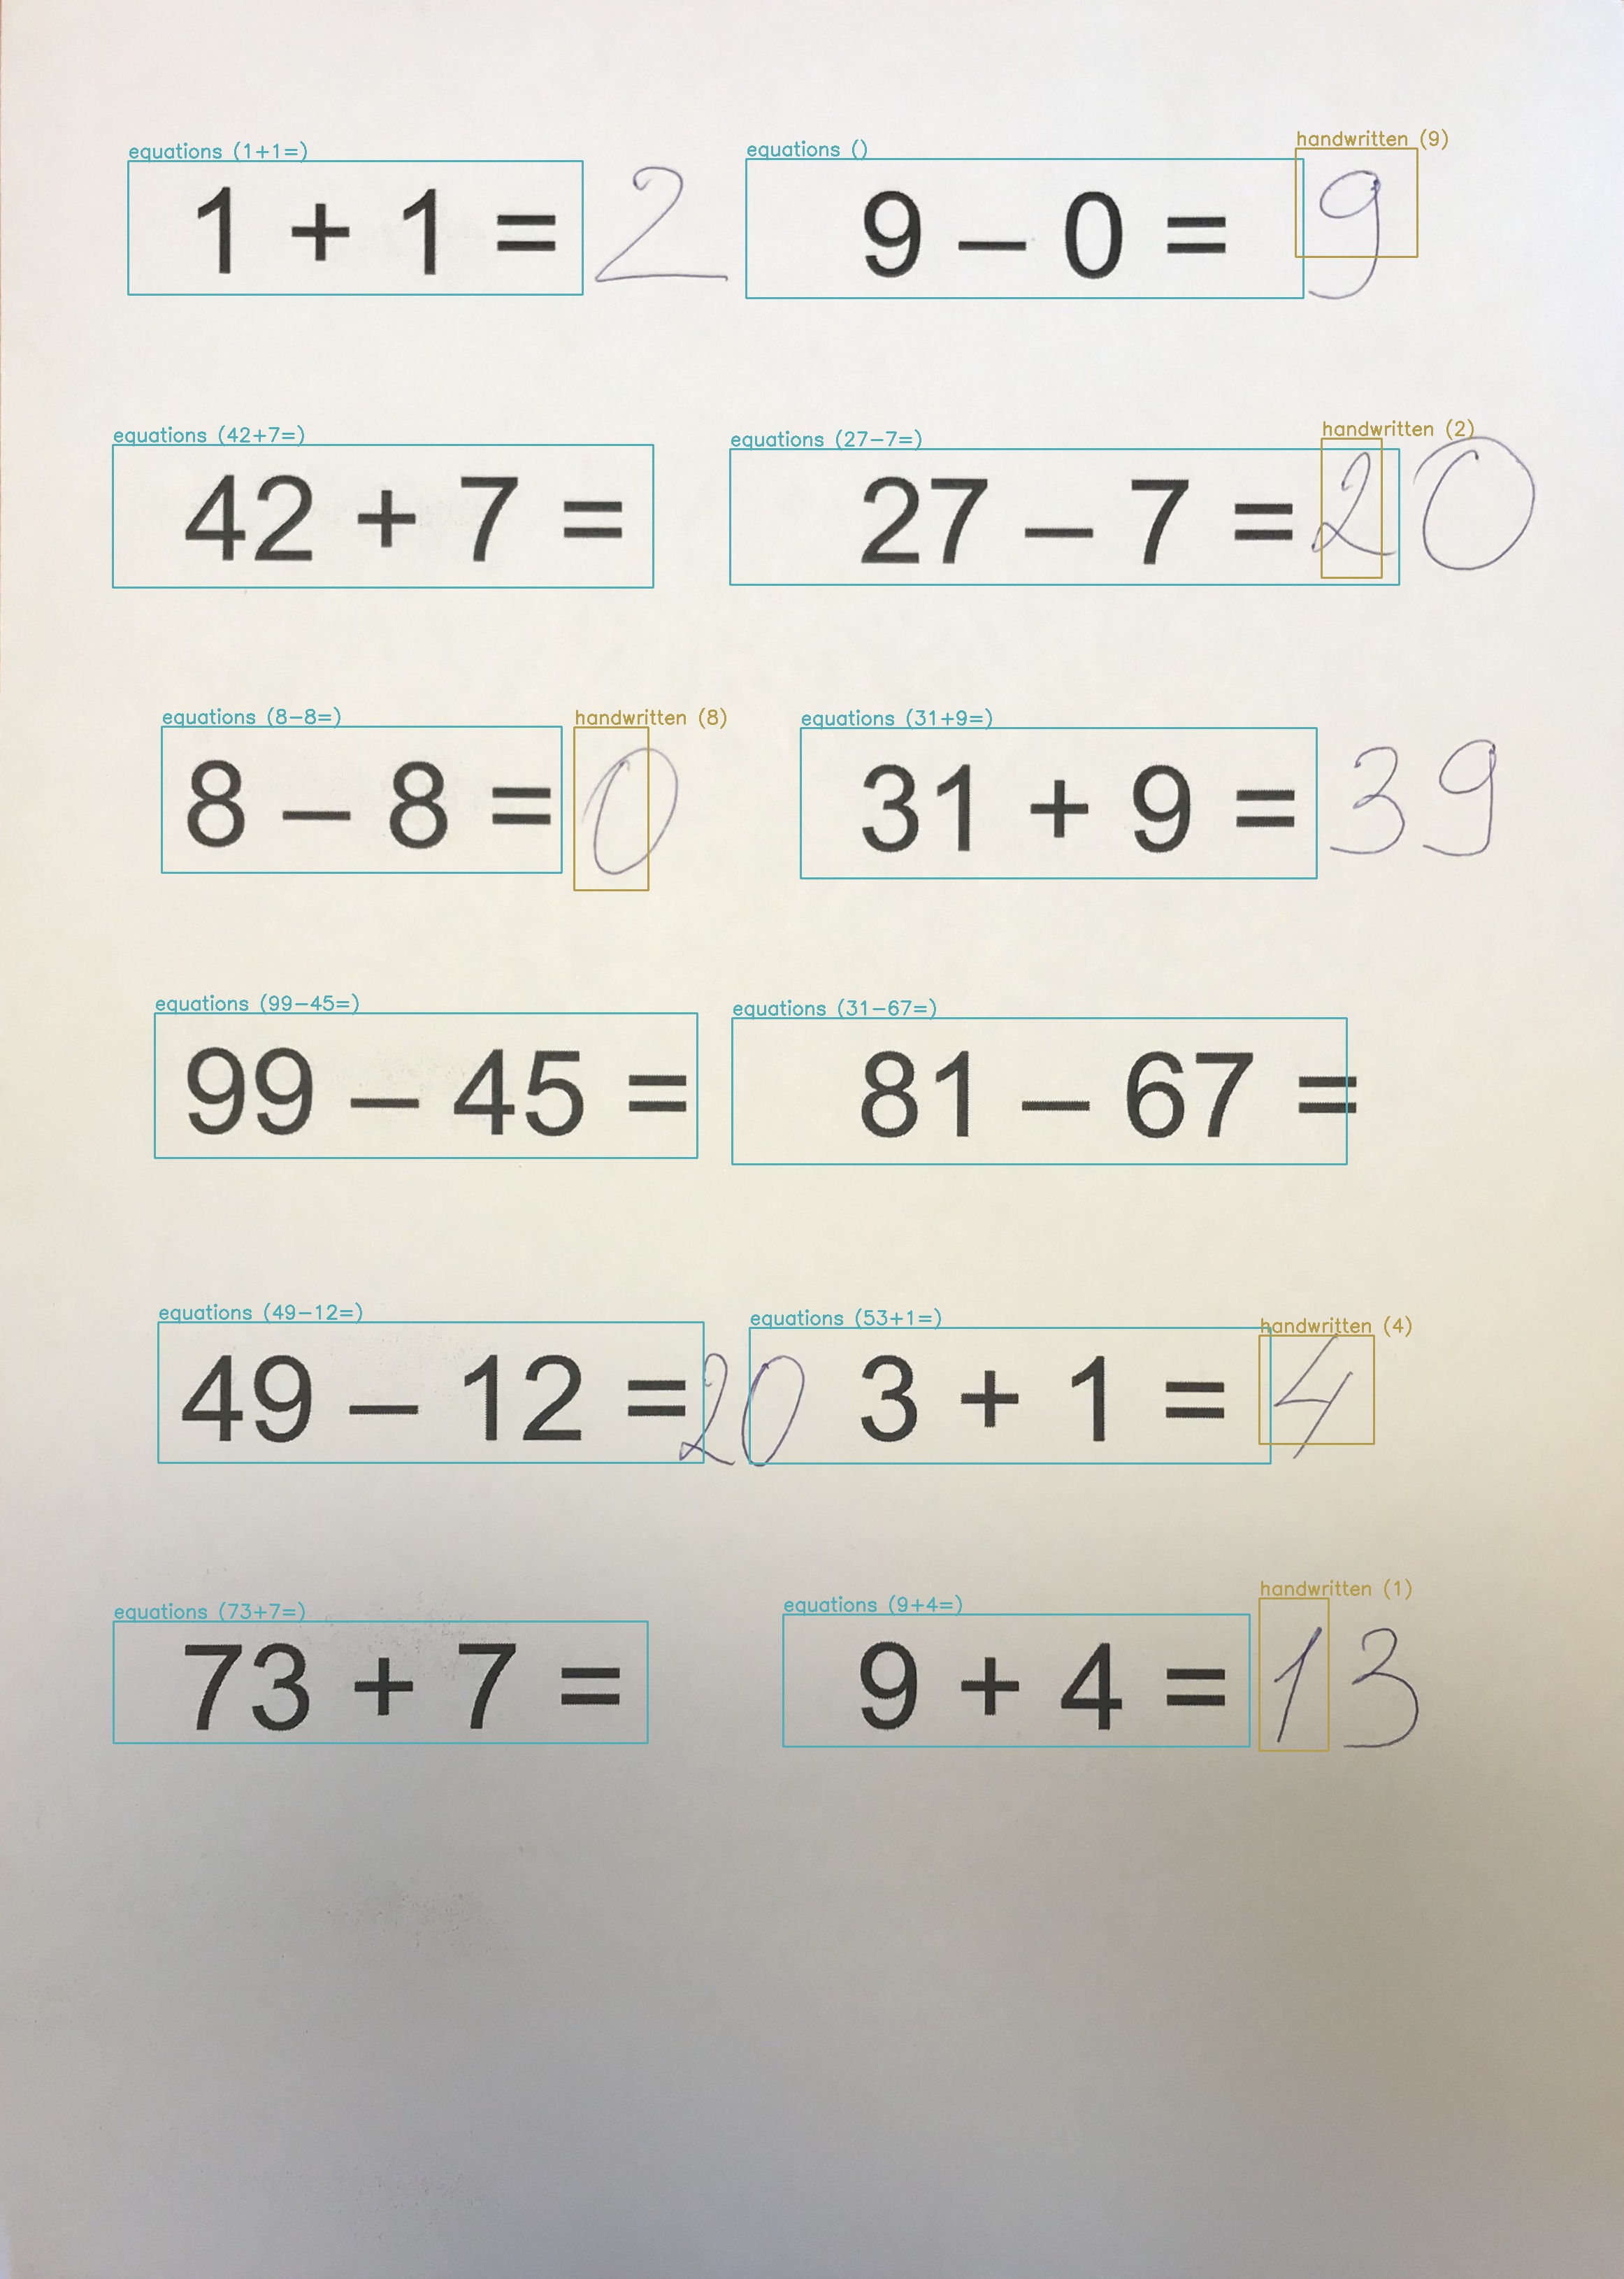 equations (1+1=) equations () handwritten (9)
1 + 1 = 2 9 – 0 = 9
equations (42+7=) equations (27-7=) handwritten (2)
42 + 7 = 27 – 7 = 20
equations (8-8=) handwritten (8) equations (31+9=)
8 – 8 = 0 31 + 9 = 39
equations (99-45=) equations (31-67=)
99 – 45 = 81 – 67 =
equations (49-12=) equations (53+1=) handwritten (4)
49 – 12 = 20 3 + 1 = 4
equations (73+7=) equations (9+4=) handwritten (1)
73 + 7 = 9 + 4 = 13